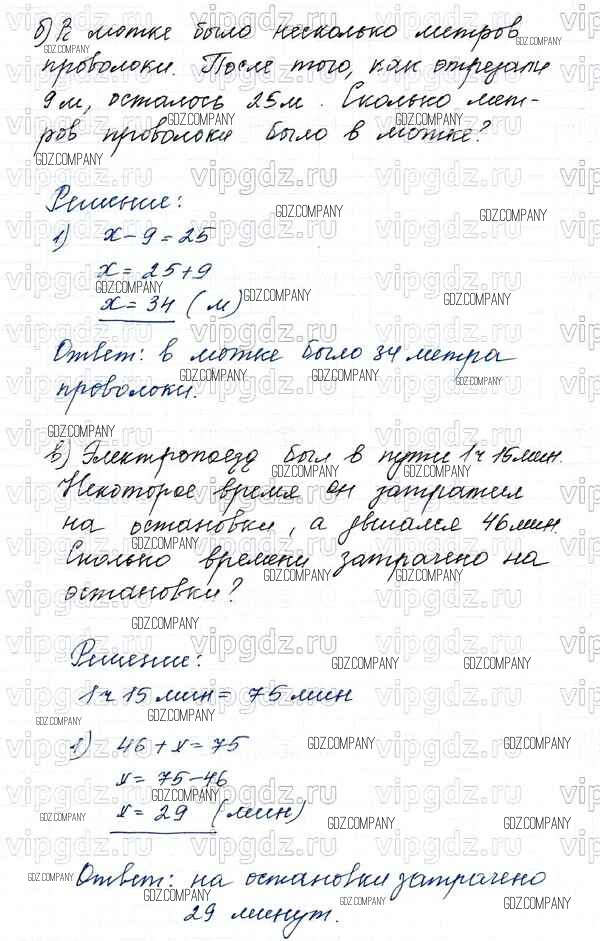 б) В мотке было несколько метров
проволоки. После того, как отрезали
9 м, осталось 25 м. Сколько мет-
ров проволоки было в мотке?
Решение:
1) x - 9 = 25
x = 25 + 9
x = 34 (м)
Ответ: в мотке было 34 метра
проволоки.
в) Электропоезд был в пути 1 ч 15 мин.
Некоторое время он затратил
на остановки, а двигался 46 мин.
Сколько времени затрачено на
остановки?
Решение:
1 ч 15 мин = 75 мин
1) 46 + x = 75
x = 75 - 46
x = 29 (мин)
Ответ: на остановки затрачено
29 минут.
vipgdz.ru
GDZ.COMPANY